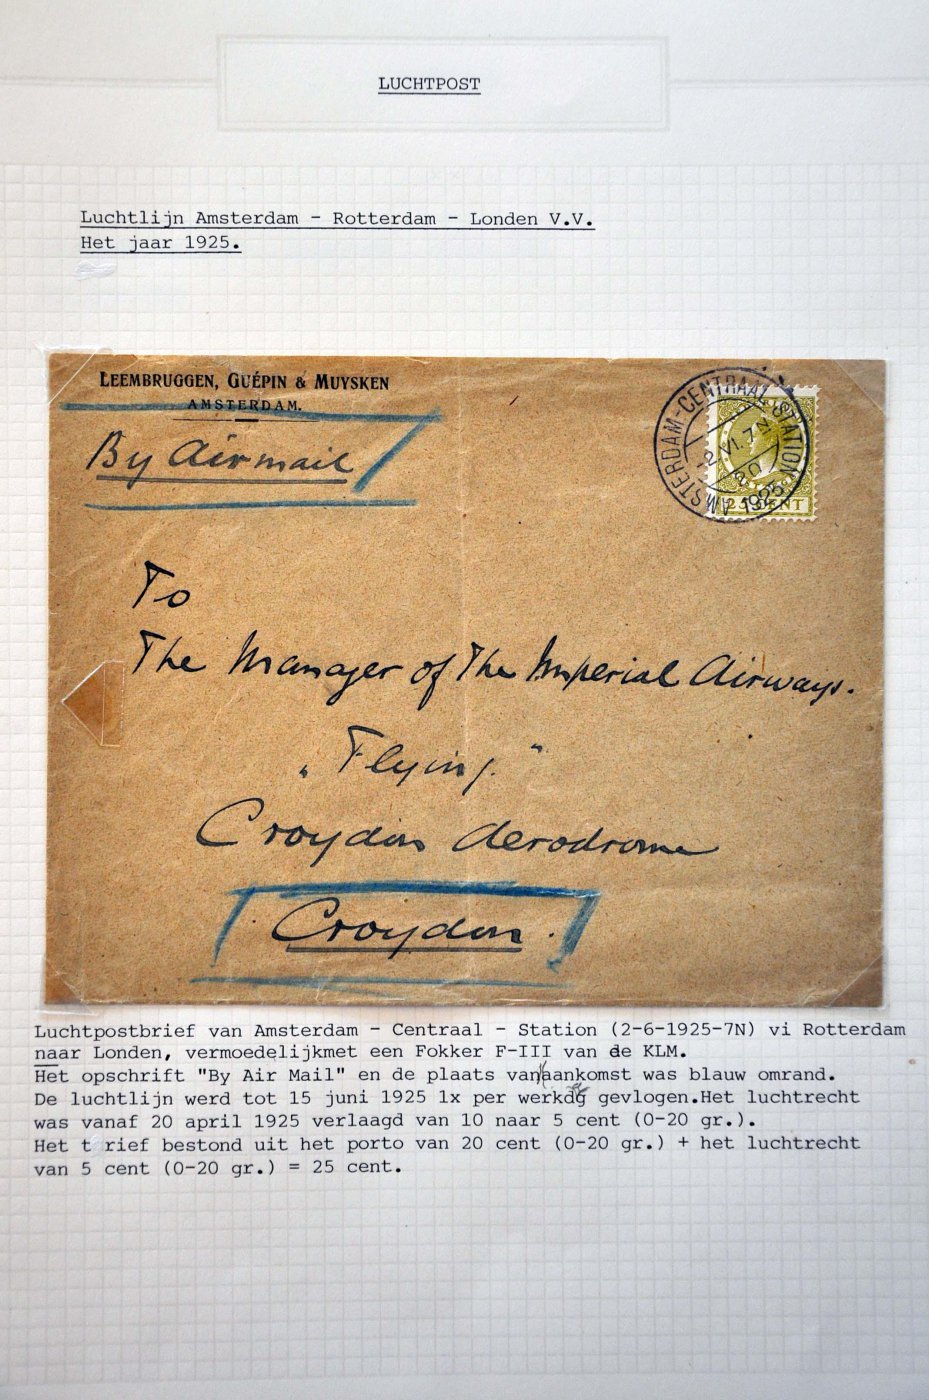 LUCHTPOST
Luchtlijn Amsterdam - Rotterdam - Londen V.V.
Het jaar 1925.
LEEMBRUGGEN, GUÉPIN & MUYSKEN
AMSTERDAM.
By Airmail
AMSTERDAM-CENTRAAL STATION
2.VI.7N
1925
25 CENT
To
The Manager of The Imperial Airways.
„Flying."
Croydon Aerodrome
Croydon.
Luchtpostbrief van Amsterdam - Centraal - Station (2-6-1925-7N) vi Rotterdam
naar Londen, vermoedelijkmet een Fokker F-III van de KLM.
Het opschrift "By Air Mail" en de plaats van aankomst was blauw omrand.
De luchtlijn werd tot 15 juni 1925 1x per werkdg gevlogen.Het luchtrecht
was vanaf 20 april 1925 verlaagd van 10 naar 5 cent (0-20 gr.).
Het t rief bestond uit het porto van 20 cent (0-20 gr.) + het luchtrecht
van 5 cent (0-20 gr.) = 25 cent.